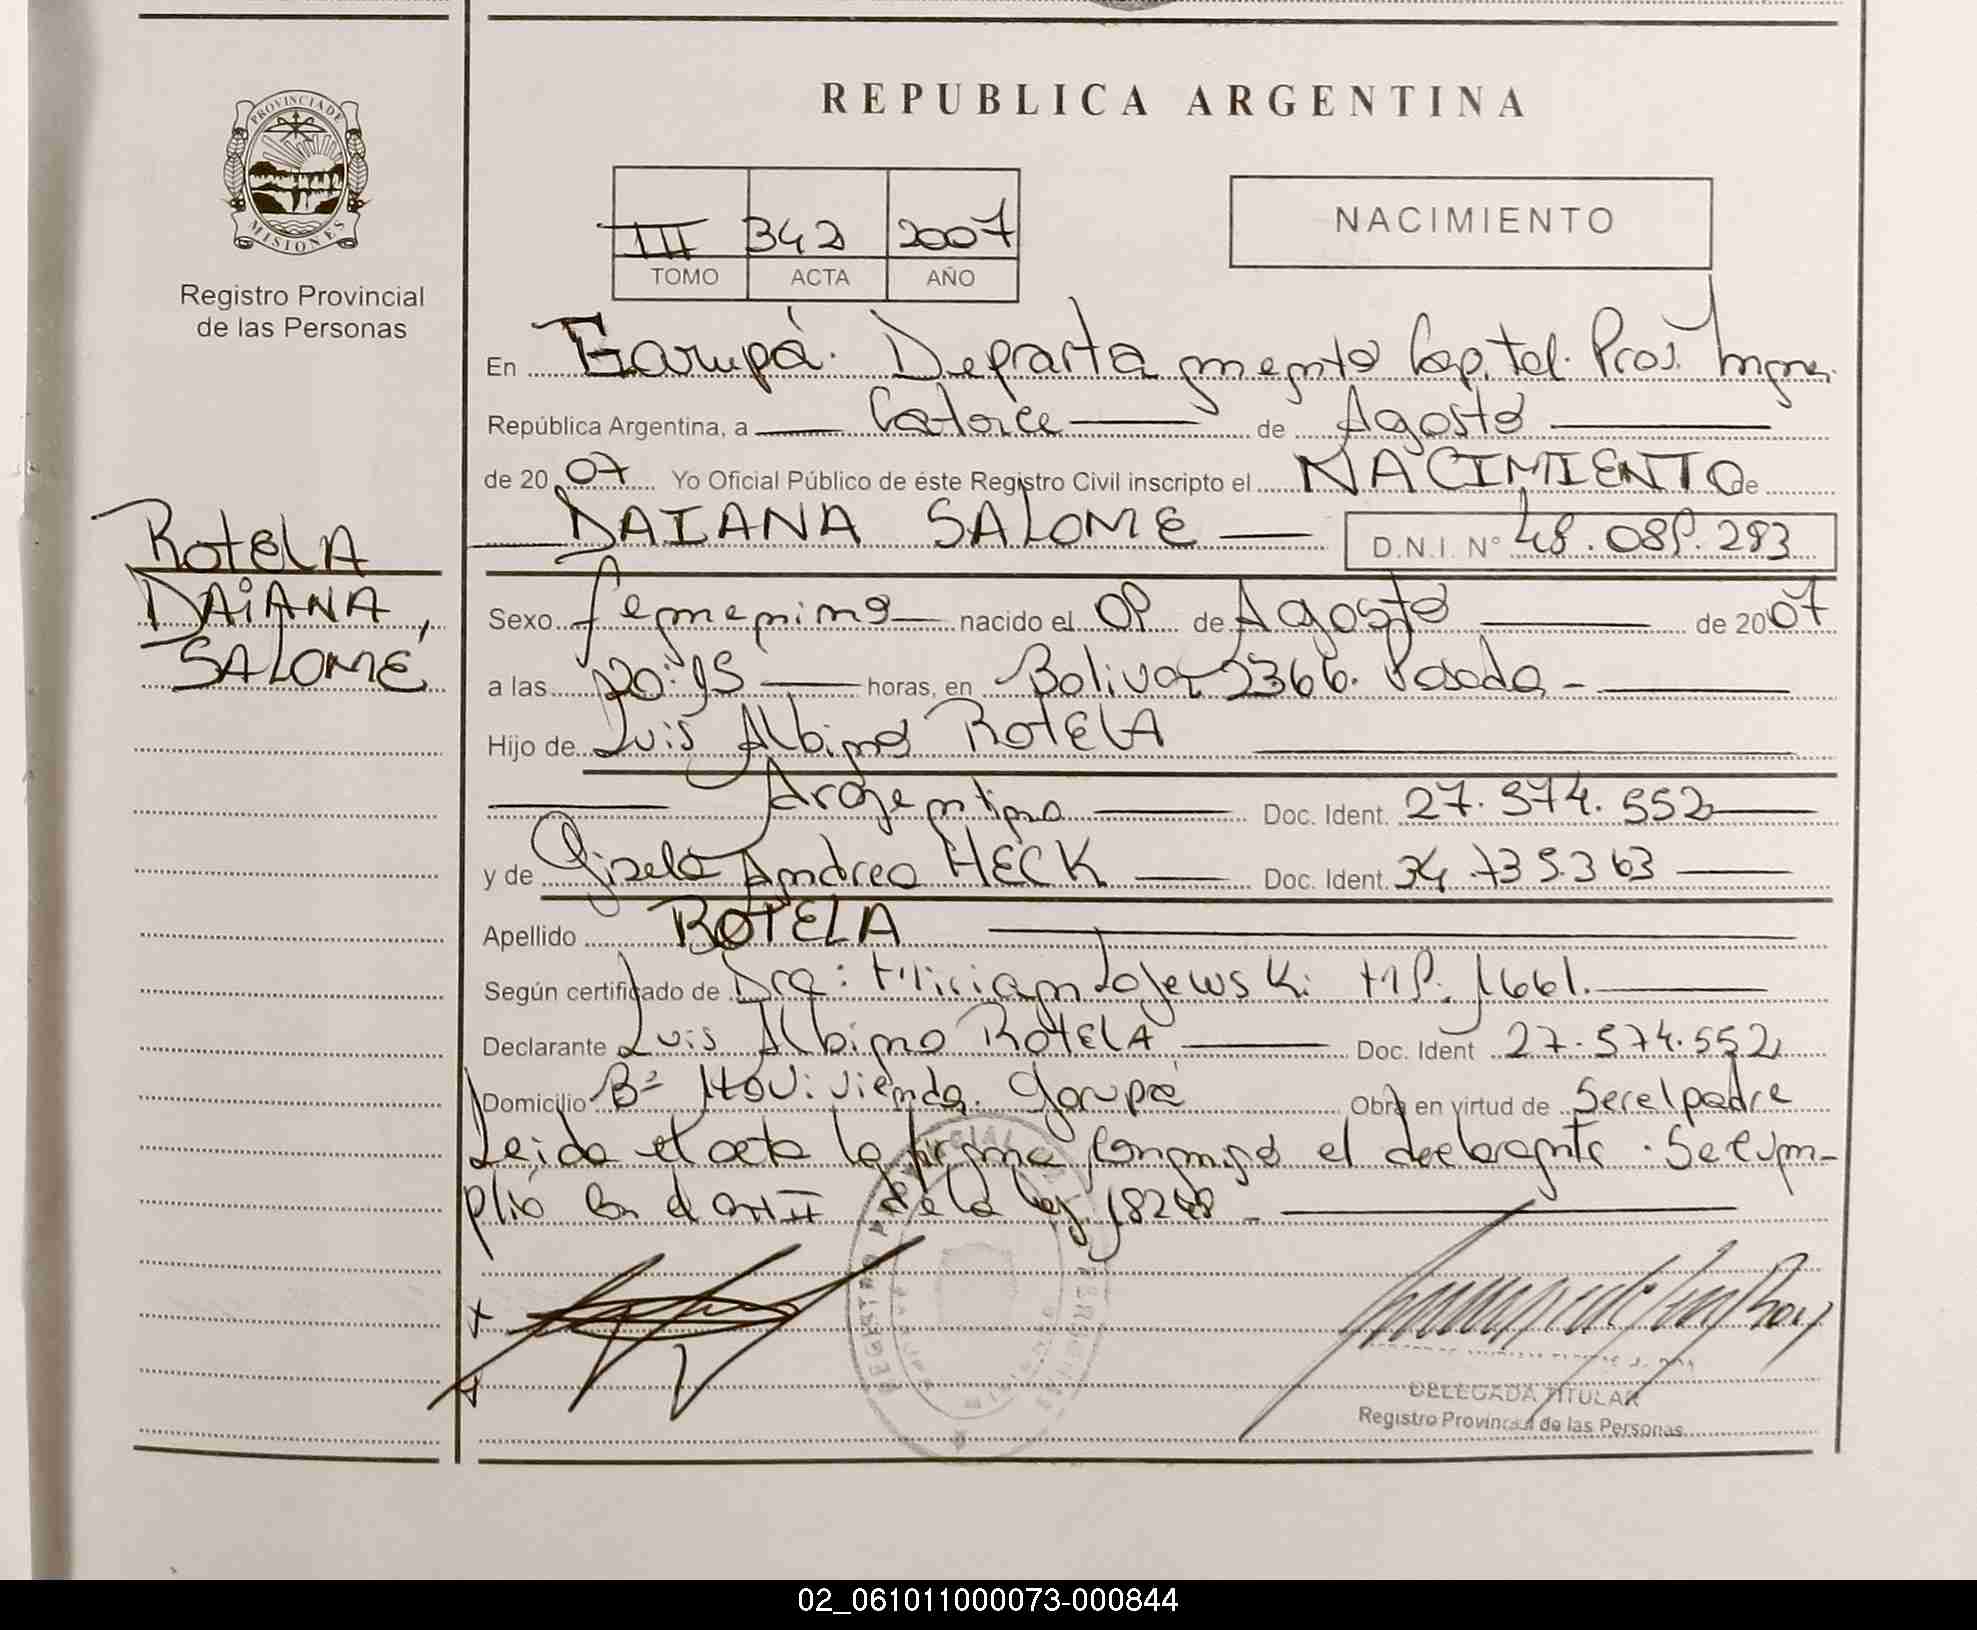 REPUBLICA ARGENTINA
PROVINCIA DE
MISIONES
Registro Provincial
de las Personas
III 342 2007
TOMO ACTA AÑO
NACIMIENTO
En Garupá. Departamento Capital. Prov. Mnes.
República Argentina, a Catorce de Agosto
de 2007 Yo Oficial Público de éste Registro Civil inscripto el NACIMIENTO de
DAIANA SALOME D.N.I. N° 48.089.283
ROTELA
DAIANA,
SALOMÉ
Sexo femenino nacido el 09 de Agosto de 2007
a las 20:15 horas, en Bolivar 2366. Posadas
Hijo de Luis Albino ROTELA
Argentino Doc. Ident. 27.574.552
y de Gisela Andrea HECK Doc. Ident. 34.735.363
Apellido ROTELA
Según certificado de Dra: Miriam Lojewski MP. 1661.
Declarante Luis Albino ROTELA Doc. Ident 27.574.552
Domicilio B° 140 Vivienda. Garupá Obra en virtud de Ser el padre
Leida el acta la firma conmigo el declarante. Se cum-
plió con el art II de la ley 18248
DELEGADA TITULAR
Registro Provincial de las Personas
02_061011000073-000844